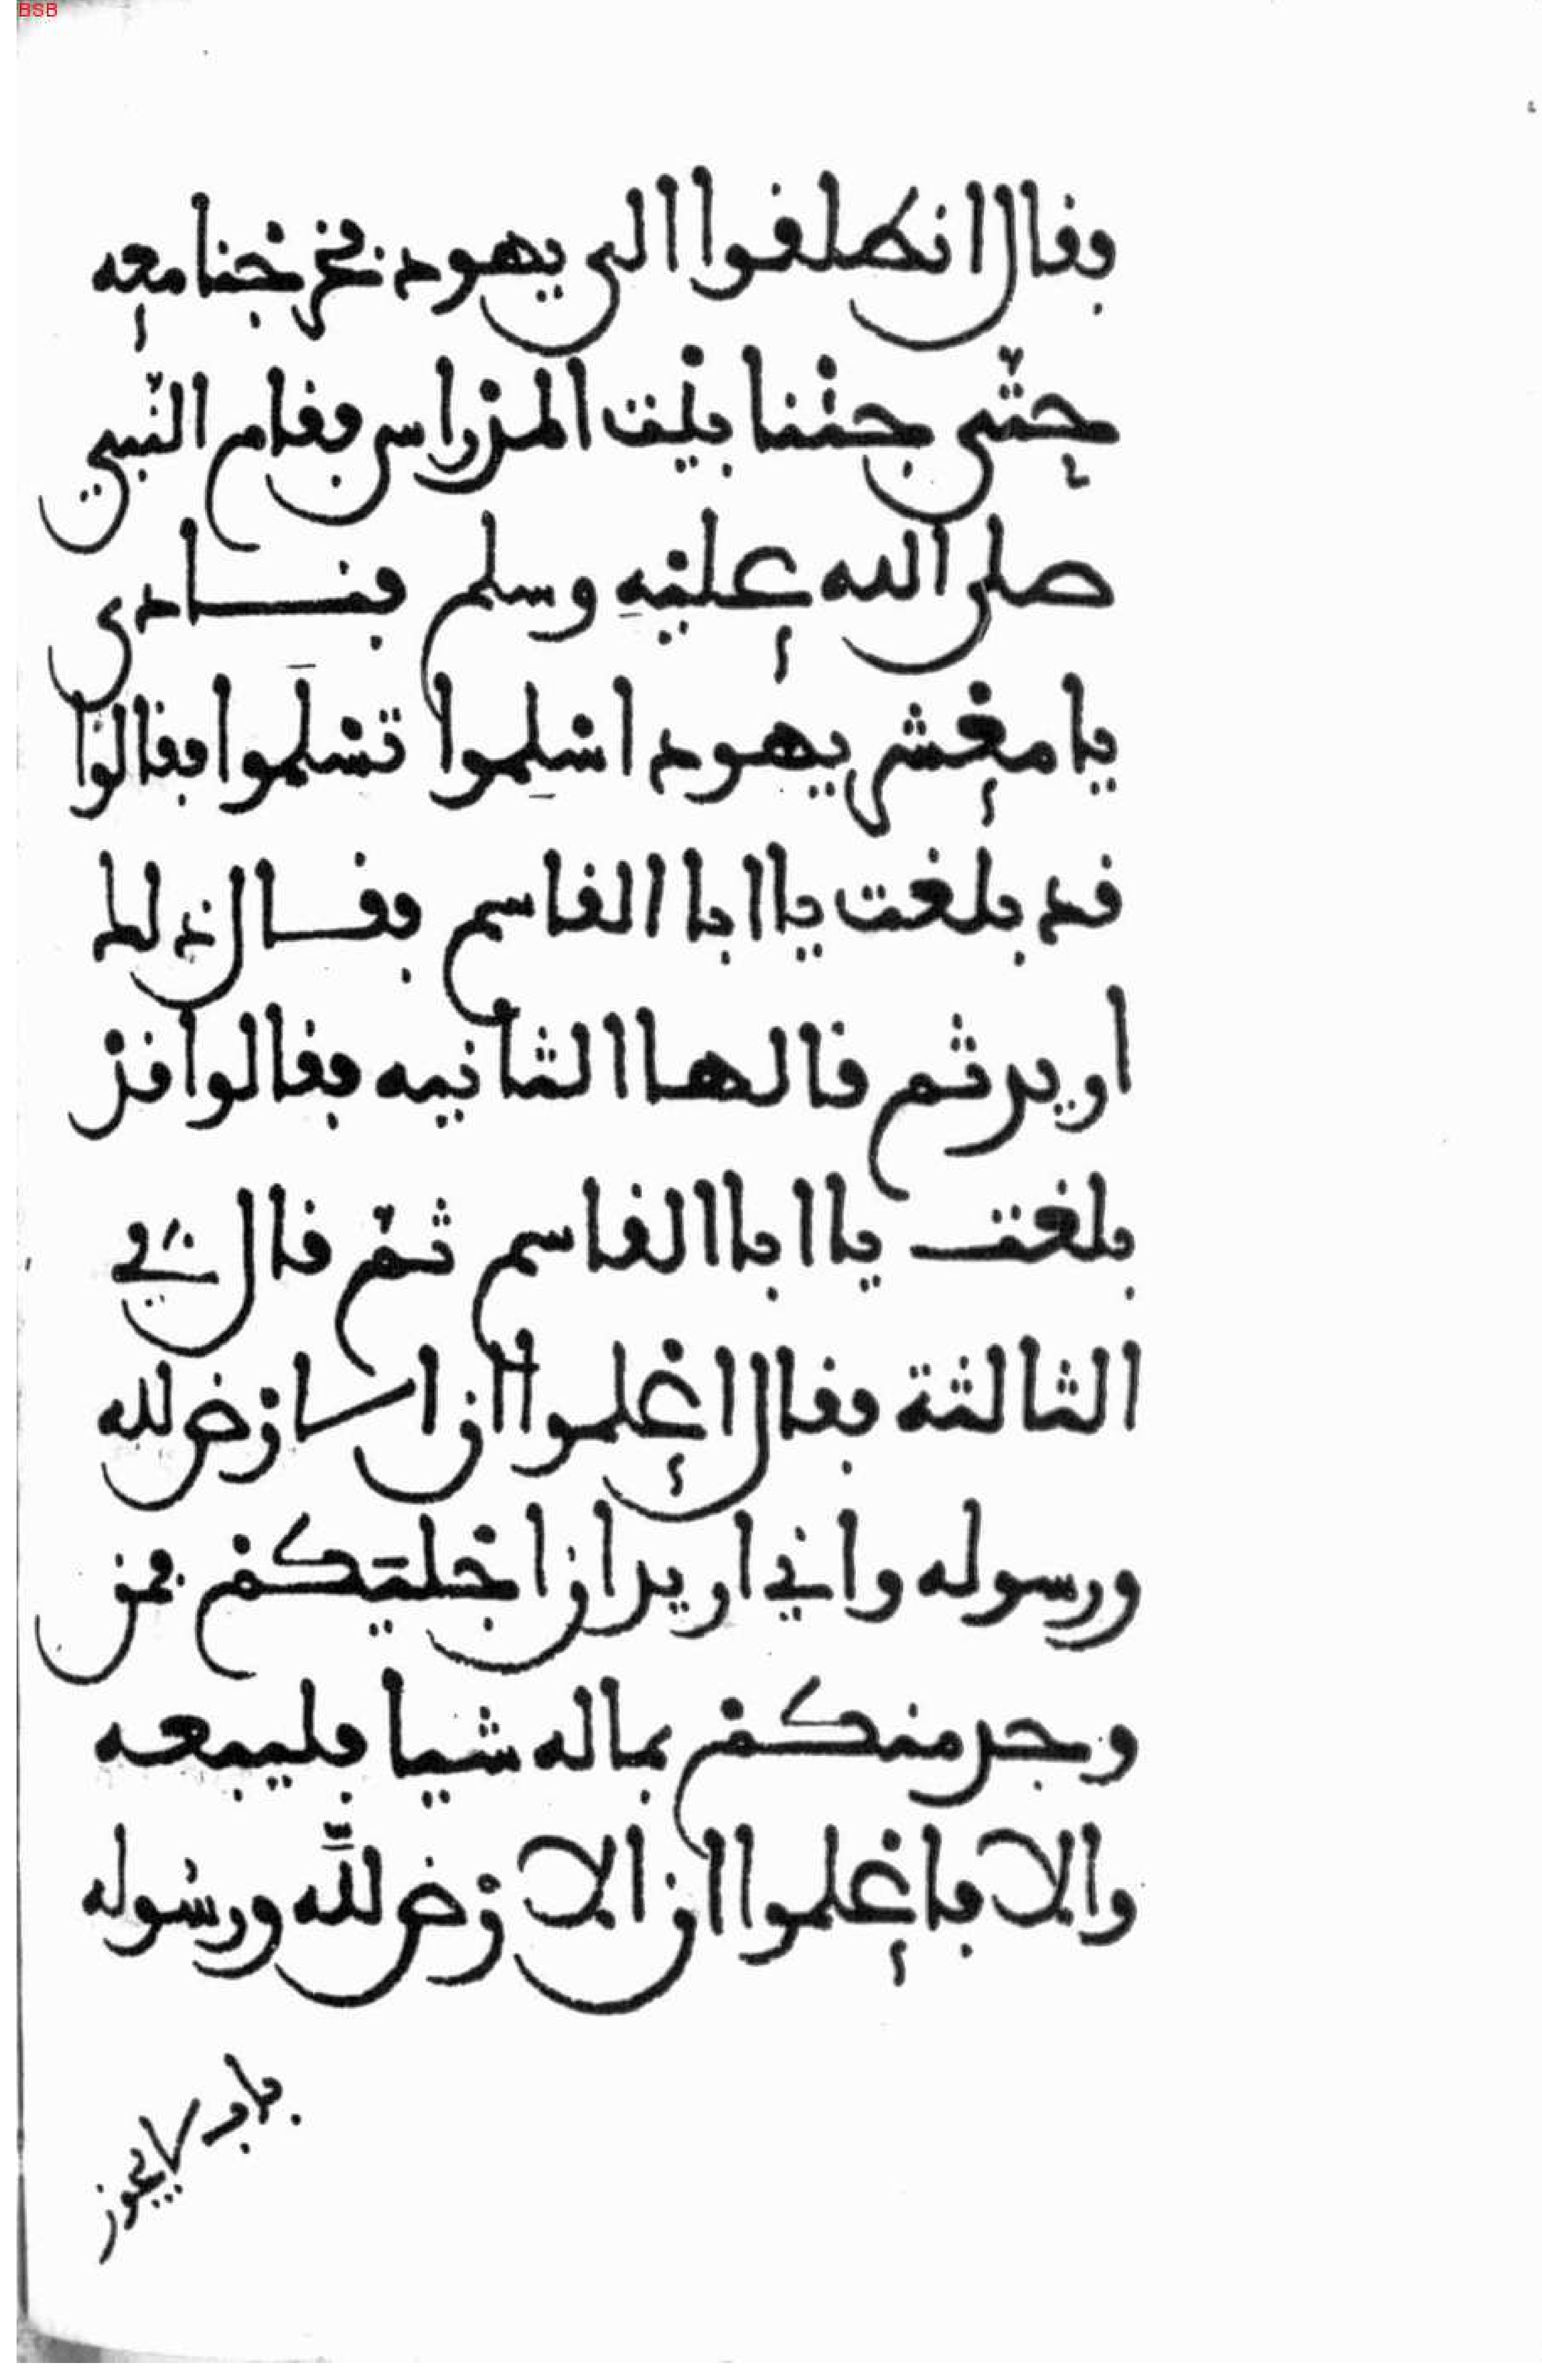 BSB
فقال انطلقوا الى يهود فخرجنا معه
حتّى جئنا بيْت المدْراس فقام النّبي
صلى الله عليْهِ وسلم فنادى
يا معْشر يهود اسْلِموا تسْلَموا فقالوا
قد بلغت يا ابا القاسم فقال ذلك
اريد ثم قالها الثانيه فقالوا قدْ
بلغت يا ابا القاسم ثمّ قال في
الثالثة فقال اعْلموا ان الارض لله
ورسوله واني اريد ان اجْليَكمْ فمن
وجد منكمْ بماله شيا فليبيعه
والا فاعْلموا ان الارْض للّه ورسُوله
باب لا يجوز